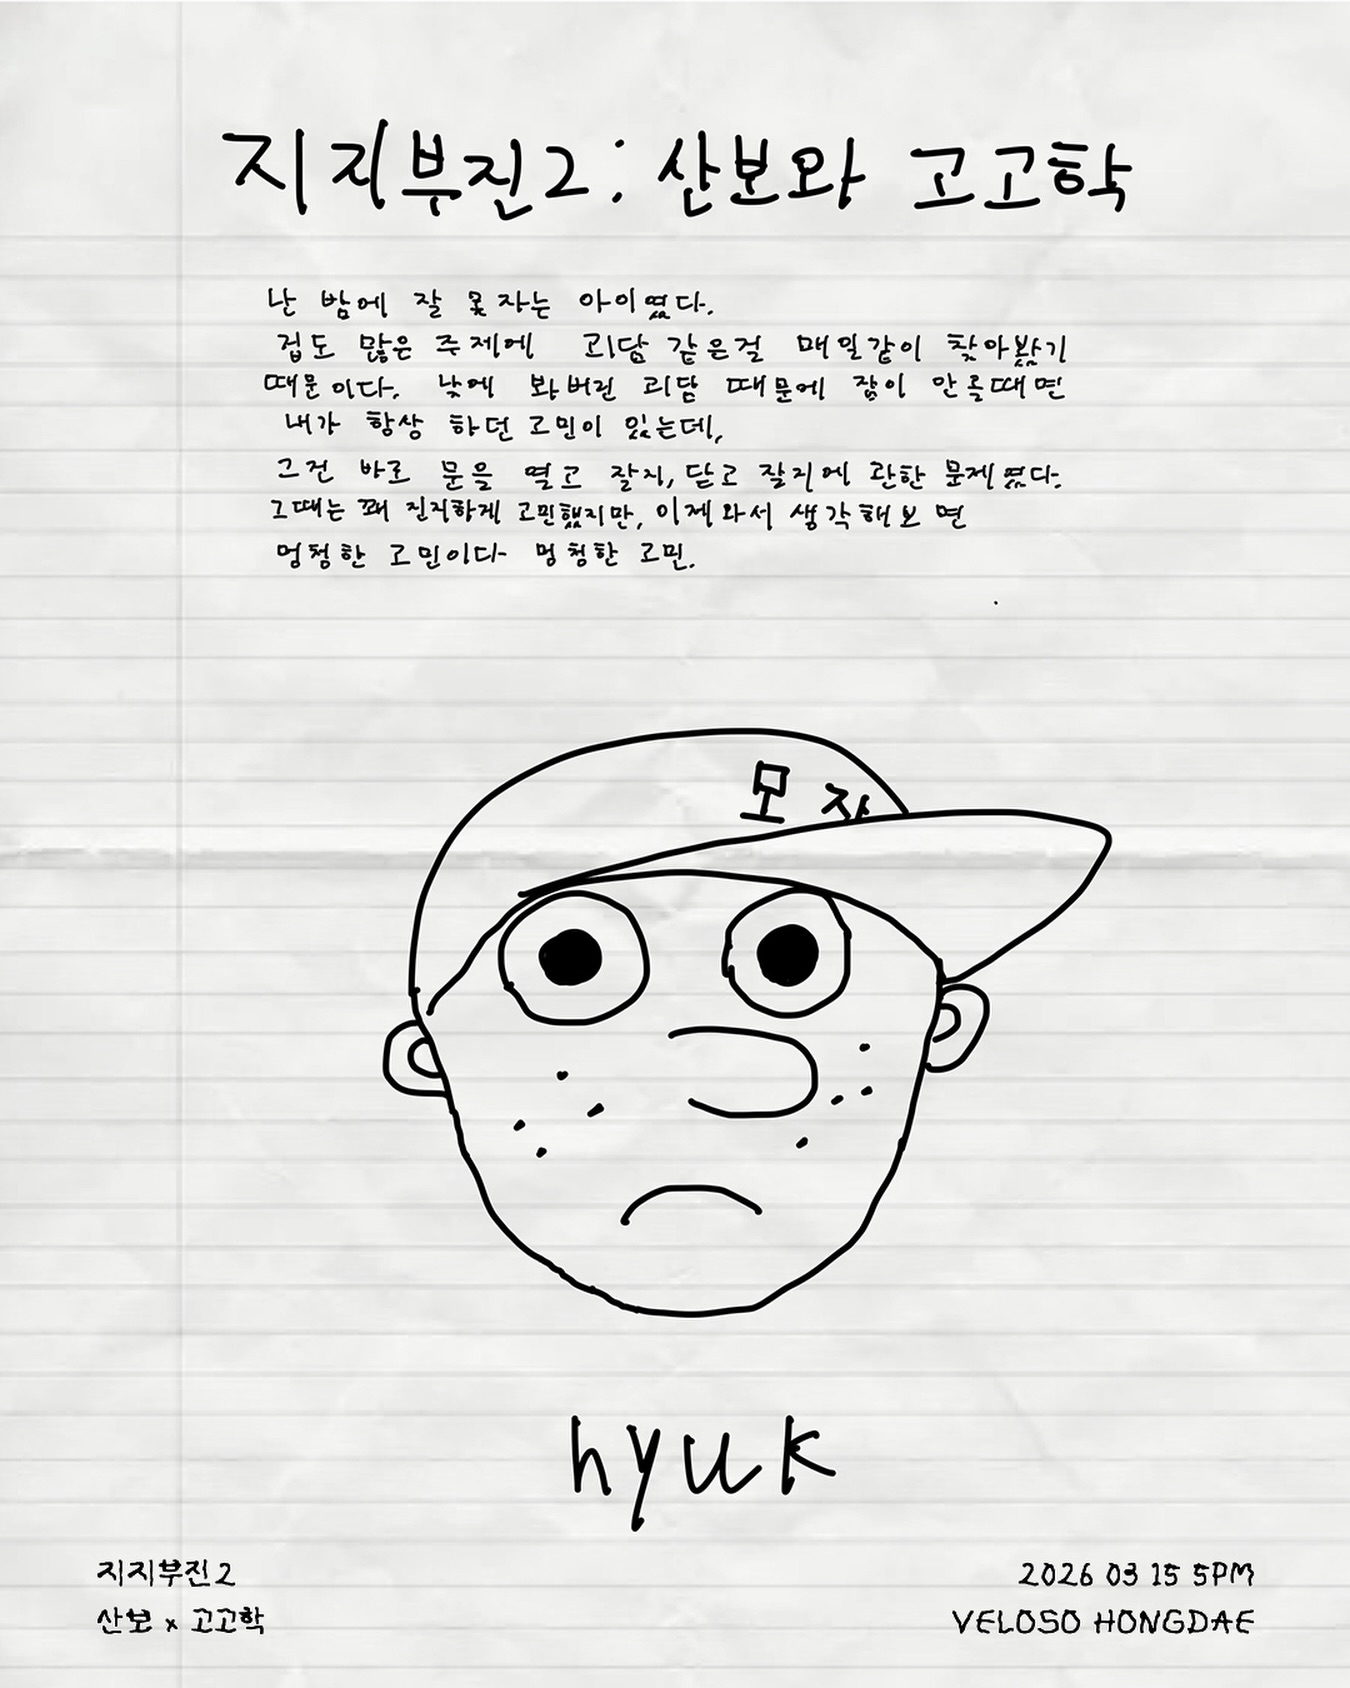 지지부진2 : 산보와 고고학
난 밤에 잘 못자는 아이였다.
겁도 많은 주제에 괴담 같은걸 매일같이 찾아봤기
때문이다. 낮에 봐버린 괴담 때문에 잠이 안올때면
내가 항상 하던 고민이 있는데,
그건 바로 문을 열고 잘지, 닫고 잘지에 관한 문제였다.
그때는 꽤 진지하게 고민했지만, 이제와서 생각해보면
멍청한 고민이다 멍청한 고민.
모자
hyuk
지지부진2
산보 x 고고학
2026 03 15 5PM
VELOSO HONGDAE